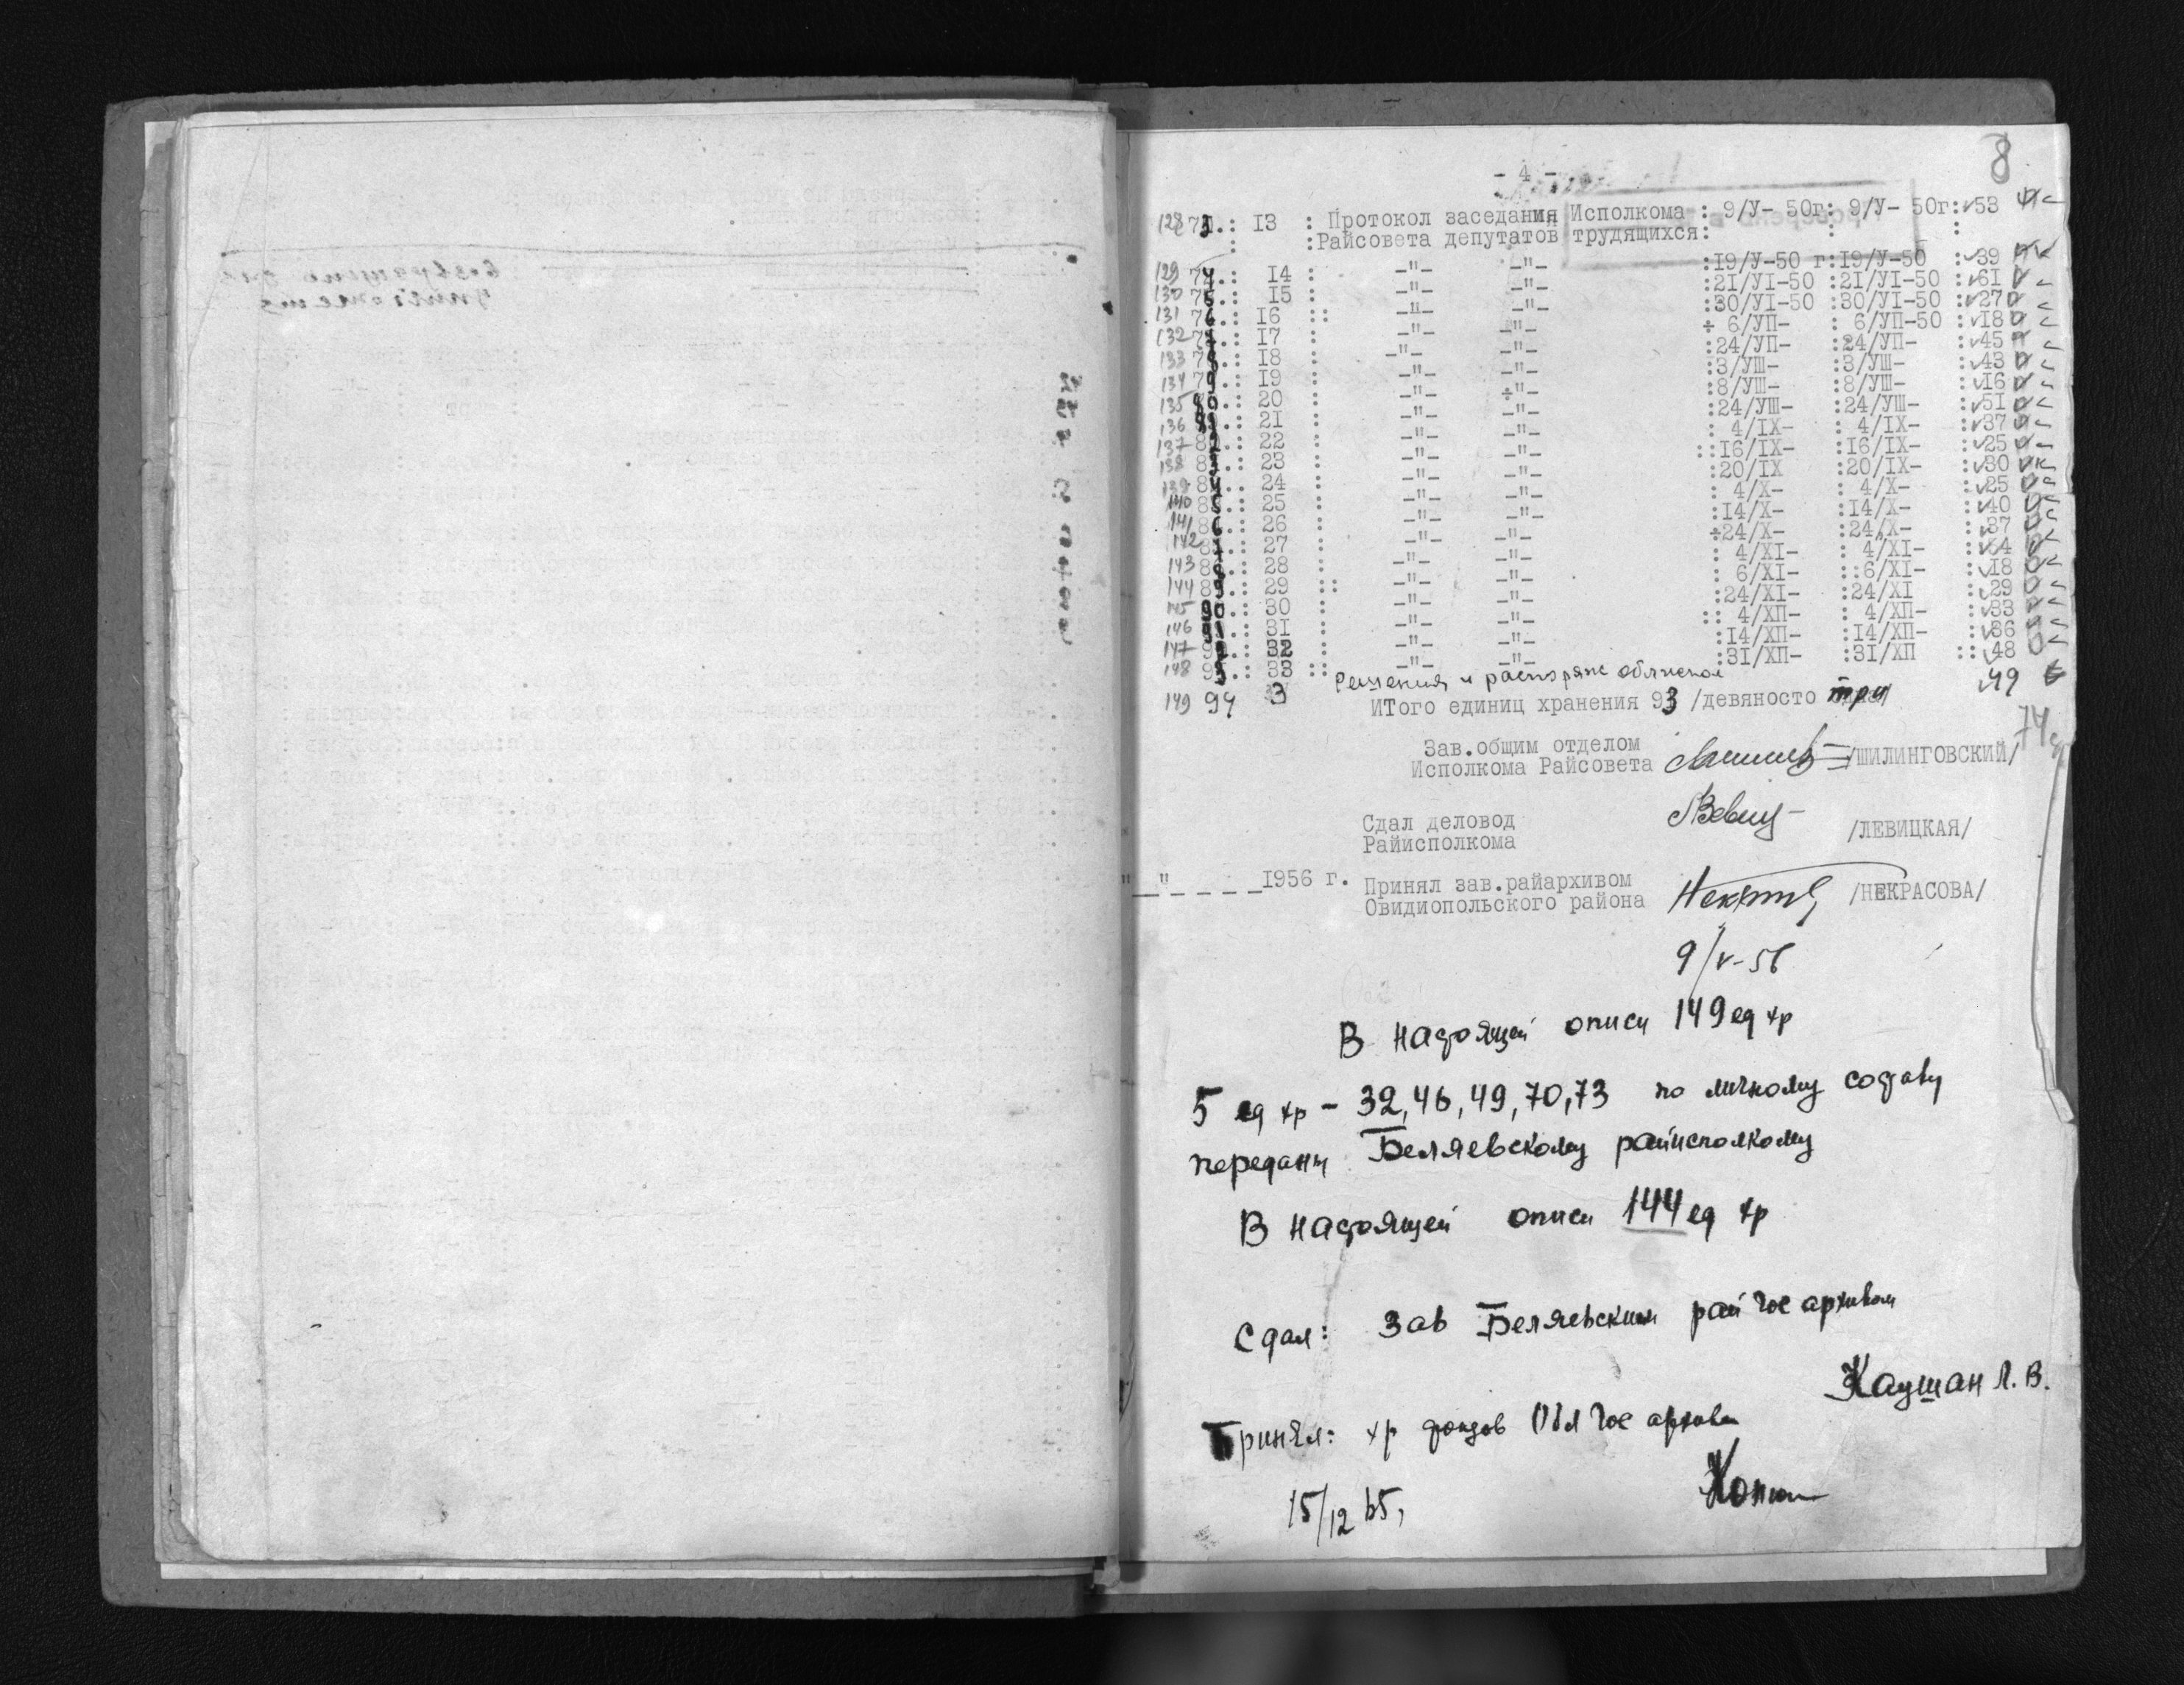 8
- 4 -
128 73.: I3 : Протокол заседания Исполкома : 9/У- 50г: 9/У- 50г: √53
:Райсовета депутатов трудящихся:
129 74.: I4 : -"- -"- :I9/У-50 г:I9/У-50 : √39
130 75.: I5 : -"- -"- :2I/УI-50 :2I/УI-50 : √6I
131 76.: I6 :: -"- -"- :30/УI-50 :30/УI-50 : √27
132 77.: I7 : -"- -"- : 6/УП- : 6/УП-50 : √I8
133 78.: I8 : -"- -"- :24/УП- :24/УП- : √45
134 79.: I9 : -"- -"- :3/УШ- :3/УШ- : √43
135 80.: 20 : -"- -"- :8/УШ- :8/УШ- : √I6
136 81.: 2I : -"- -"- :24/УШ- :24/УШ- : √5I
137 82.: 22 : -"- -"- : 4/IX- : 4/IX- : √37
138 83.: 23 : -"- -"- ::I6/IX- :I6/IX- : √25
139 84.: 24 : -"- -"- :20/IX :20/IX- : √30
140 85.: 25 : -"- -"- : 4/X- : 4/X- : √25
141 86.: 26 : -"- -"- :I4/X- :I4/X- : √40
142 87.: 27 : -"- -"- :24/X- :24/X- : √37
143 88.: 28 : -"- -"- : 4/XI- : 4/XI- : √34
144 89.: 29 :: -"- -"- : 6/XI- :: 6/XI- : √I8
145 90.: 30 : -"- -"- :24/XI- :24/XI : √29
146 91.: 3I : -"- -"- :: 4/ХП- : 4/ХП- : √33
147 92.: 32 : -"- -"- :I4/ХП- :I4/ХП- : √36
148 93.: 33 :: -"- -"- :3I/ХП- :3I/ХП :: √48
149 94 3 Решения и распоряж √49
ИТого единиц хранения 93 /девяносто три/
Зав.общим отделом
Исполкома Райсовета /ШИЛИНГОВСКИЙ/
Сдал деловод
Райисполкома /ЛЕВИЦКАЯ/
"__"_ _ _ _ _I956 г. Принял зав.райархивом
Овидиопольского района /НЕКРАСОВА/
9/V-56
В настоящей описи 149 ед хр
5 ед хр - 32, 46, 49, 70, 73 по личному составу
переданы Беляевскому райисполкому
В настоящей описи 144 ед хр
Сдал: Зав Беляевским рай гос архивом
Каушан Л. В.
Принял: хр фондов Обл гос архива
15/12 65,